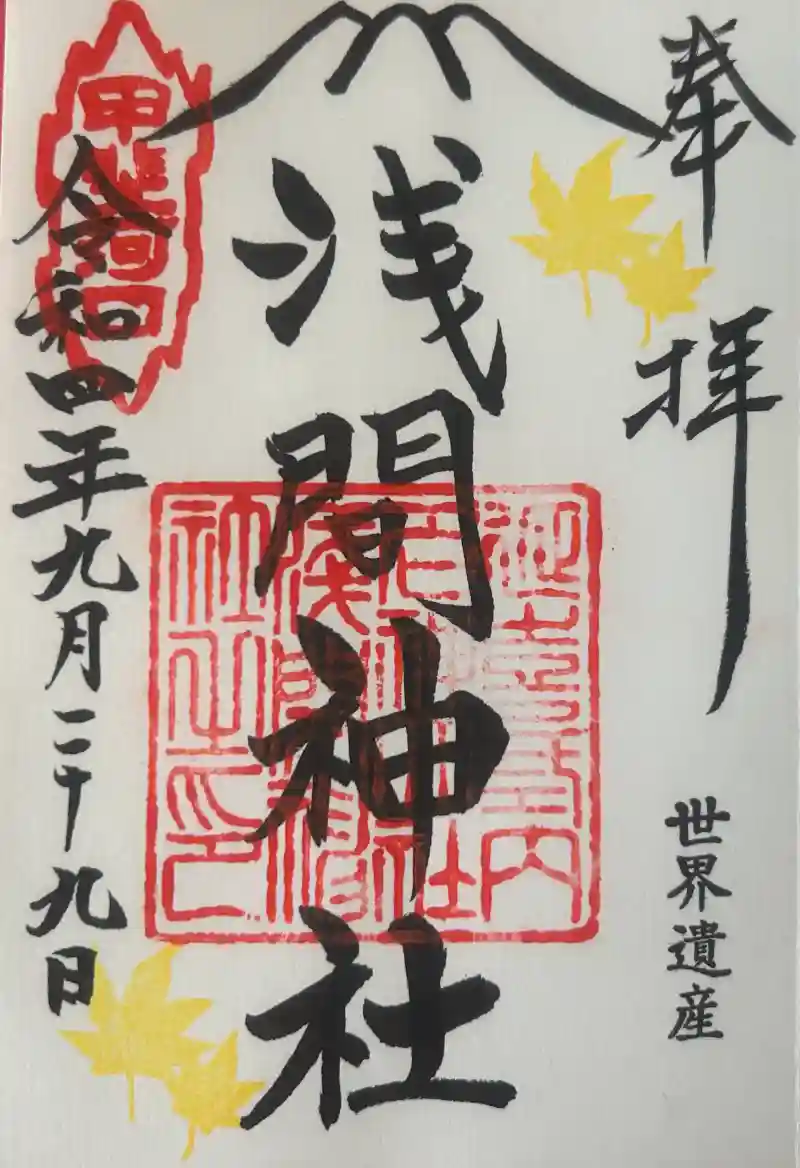 奉拝
世界遺産
浅間神社
甲斐河口
令和四年九月二十九日